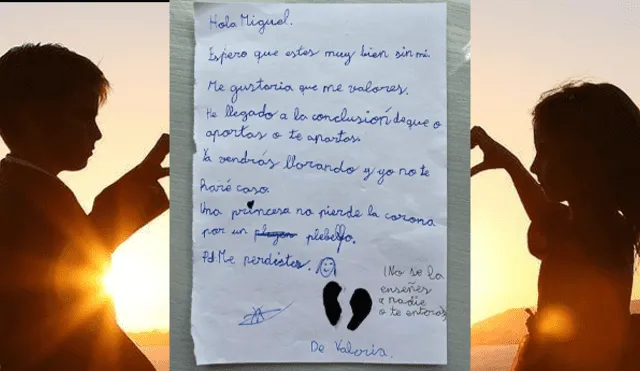 Hola Miguel.
Espero que estes muy bien sin mi.
Me gustaria que me valores.
He llegado a la conclusión de que o
aportas o te apartas.
Ya vendrás llorando y yo no te
haré caso.
Una princesa no pierde la corona
por un plebello.
Pd Me perdistes.
(No se la
enseñes
a nadie
o te enteras)
De Valeria.